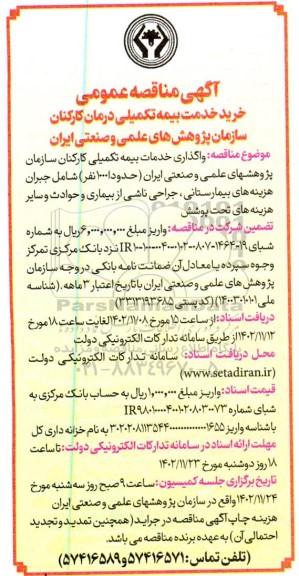 آگهی مناقصه عمومی
خرید خدمت بیمه تکمیلی درمان کارکنان
سازمان پژوهش های علمی و صنعتی ایران
موضوع مناقصه: واگذاری خدمات بیمه تکمیلی کارکنان سازمان
پژوهشهای علمی و صنعتی ایران (حدودا ۱۰۰۰ نفر) شامل جبران
هزینه های بیمارستانی، جراحی ناشی از بیماری و حوادث و سایر
هزینه های تحت پوشش
تضمین شرکت در مناقصه: واریز مبلغ ۶,۰۰۰,۰۰۰,۰۰۰ ریال به شماره
شبای نزد بانک مرکزی تمرکز
وجوه سپرده یا معادل آن ضمانت نامه بانکی در وجه سازمان
پژوهش های علمی و صنعتی ایران با تاریخ اعتبار ۳ ماهه. (شناسه
ملی ۱۴۰۰۳۰۱۰۱) (کد پستی ۳۳۱۳۱۹۳۶۸۵)
دریافت اسناد: از ساعت ۱۵ مورخ ۱۴۰۲/۱۱/۰۸ لغایت ساعت ۱۸ مورخ
۱۴۰۲/۱۱/۱۲ از طریق سامانه تدارکات الکترونیکی دولت
محل دریافت اسناد: سامانه تدارکات الکترونیکی دولت
(www.setadiran.ir)
قیمت اسناد: واریز مبلغ ۱,۰۰۰,۰۰۰ ریال به حساب بانک مرکزی به
شبای شماره به نام خزانه داری کل
با شناسه واریز
مهلت ارائه اسناد در سامانه تدارکات الکترونیکی دولت: تا ساعت
۱۸ روز دوشنبه مورخ ۱۴۰۲/۱۱/۲۳
تاریخ برگزاری جلسه کمیسیون: ساعت ۹ صبح روز سه شنبه مورخ
۱۴۰۲/۱۱/۲۴ واقع در سازمان پژوهشهای علمی و صنعتی ایران
هزینه چاپ آگهی مناقصه در جراید (همچنین تمدید و تجدید
احتمالی آن) به عهده برنده مناقصه می باشد.
(تلفن تماس: ۵۷۴۱۶۵۷۱ و ۵۷۴۱۶۵۸۹)